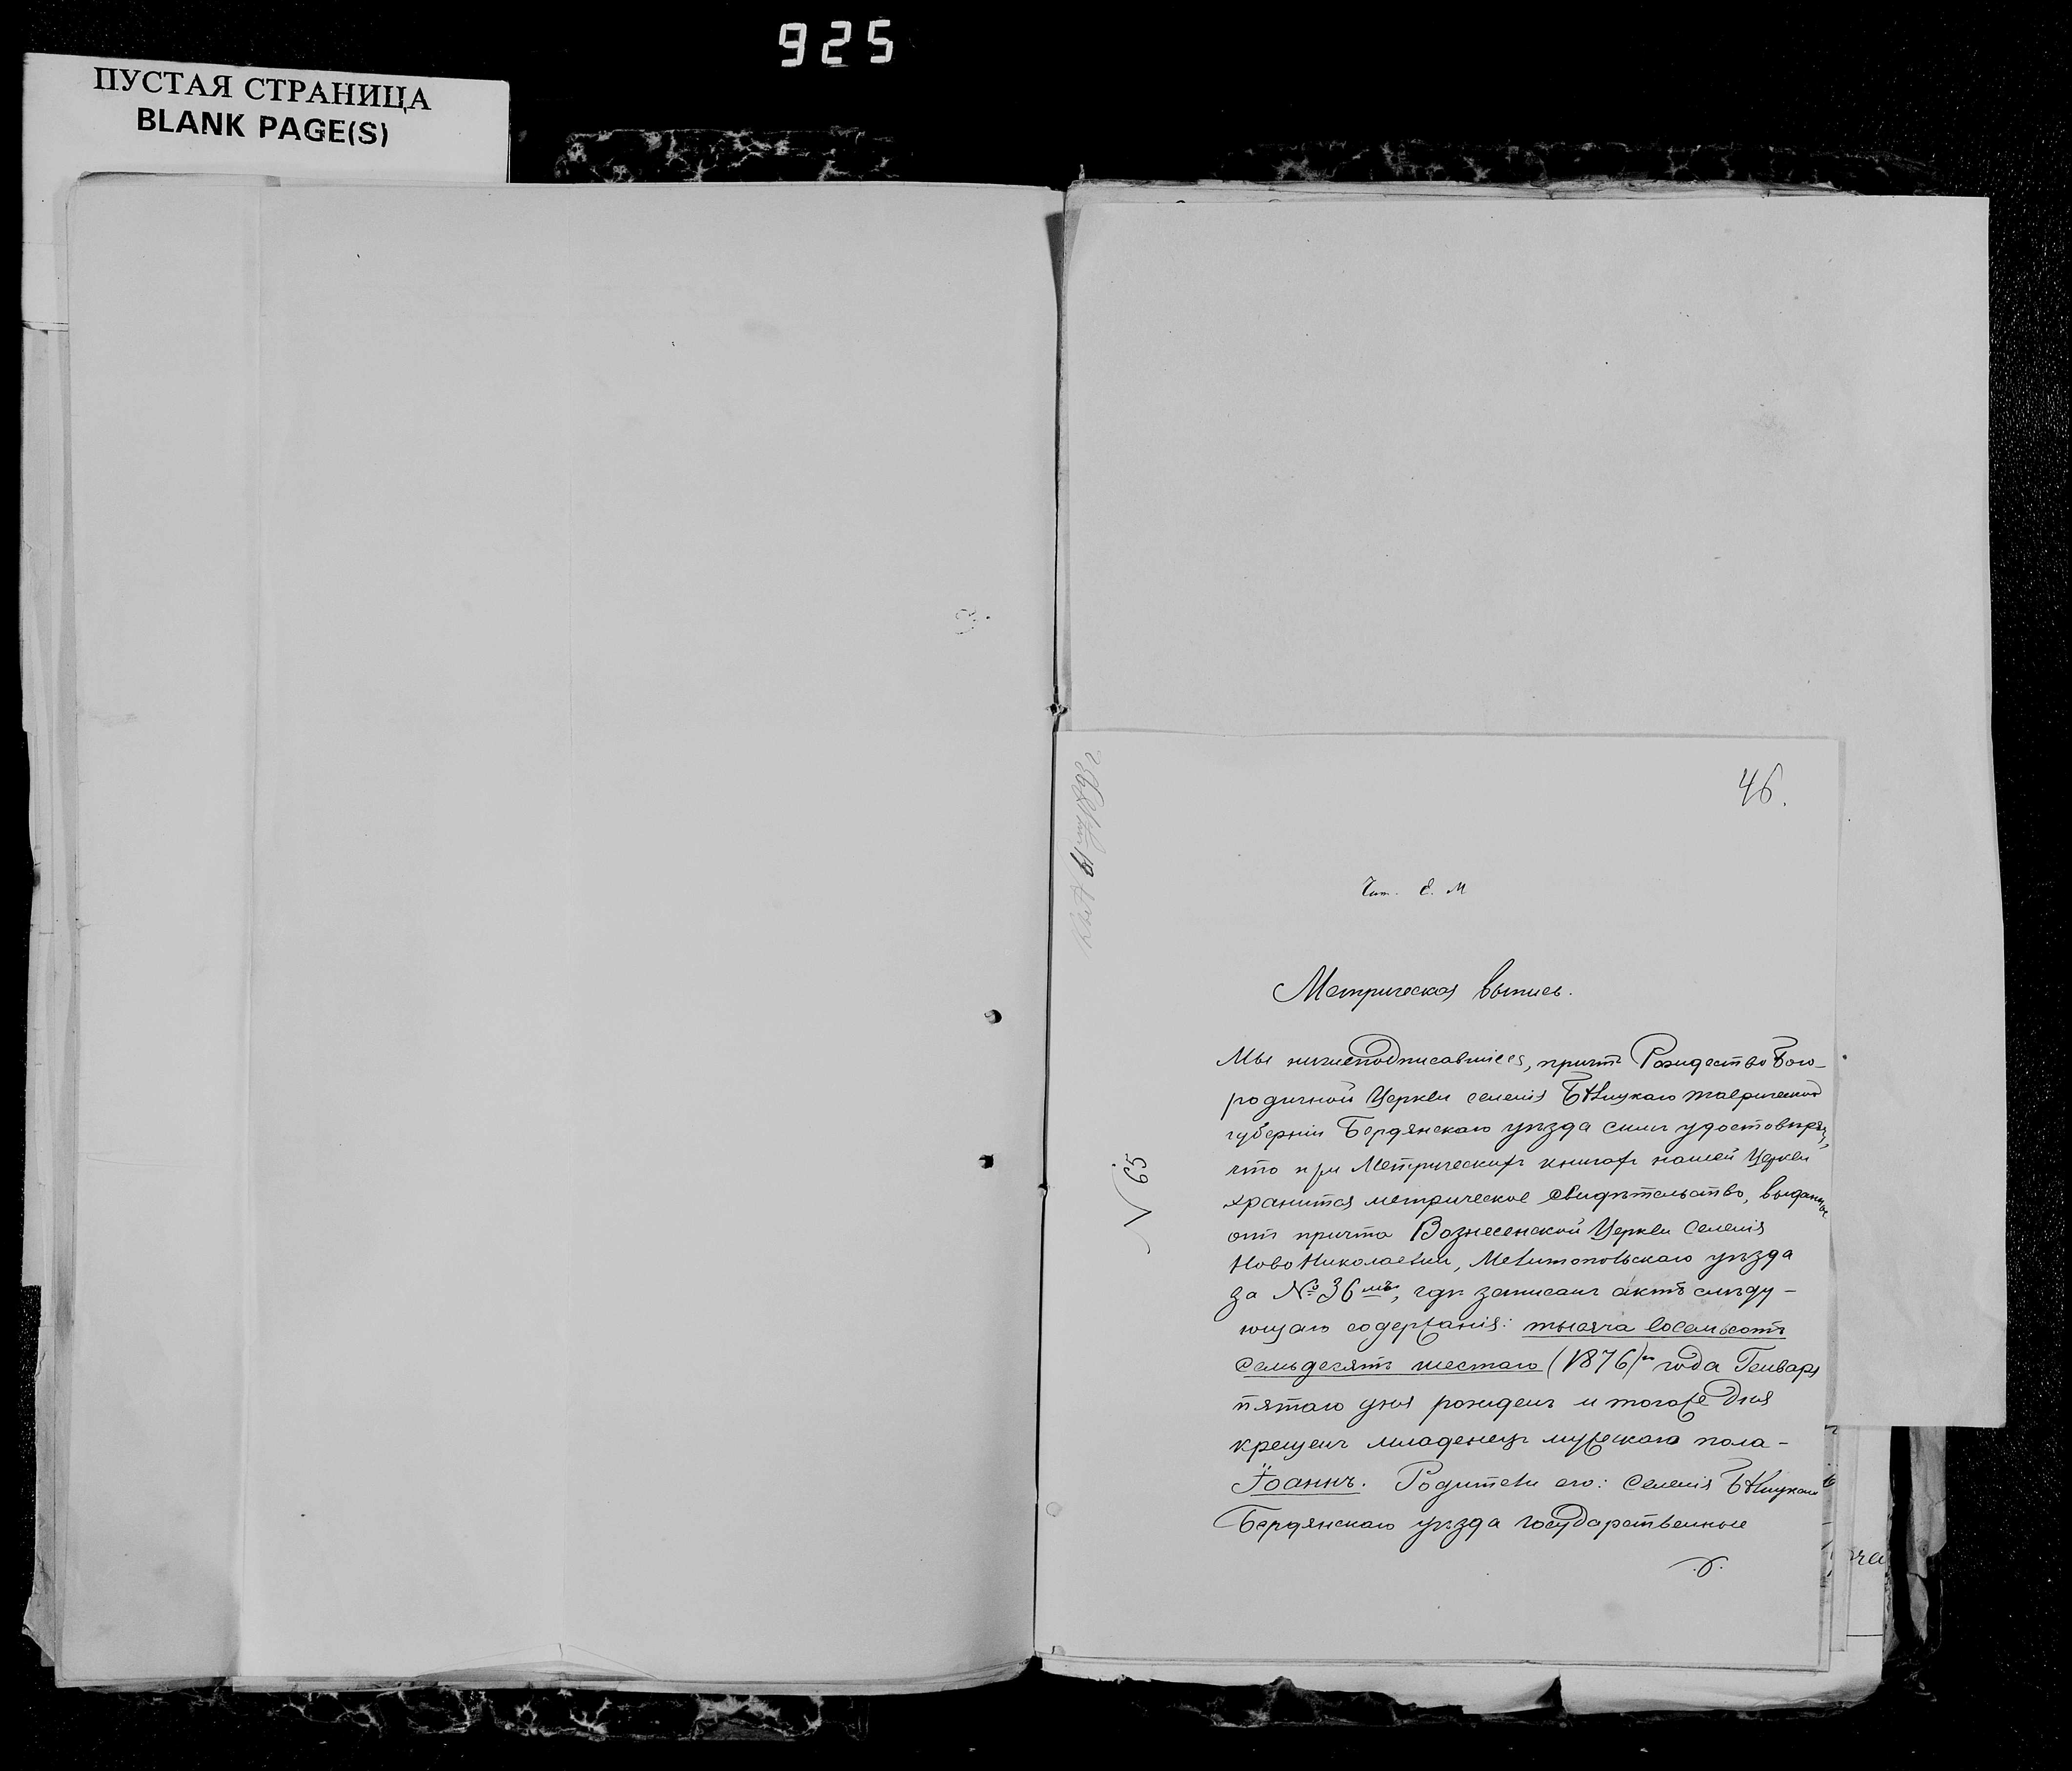 925
ПУСТАЯ СТРАНИЦА
BLANK PAGE(S)
46.
Чит. Е. М
Метрическая выпись.
Мы нижеподписавшіеся, причтъ Рождество Бого-
родичной Церкви селенія Бѣлицкаго Таврической
губерніи Бердянскаго уѣзда симъ удостовѣряу,
что при Метрическихъ книгахъ нашей Церкви
хранится метрическое свидѣтельство, выданное
отъ причта Вознесенской Церкви Селенія
Ново Николаевки, Мелитопольскаго уѣзда
за № 36 мъ, гдѣ записанъ актъ слѣду-
ющаго содержанія: тысяча восемьсотъ
Семьдесятъ шестаго (1876) го года Генваря
пятаго дня рожденъ и тогоже дня
крещенъ младенецъ мужескаго пола-
Іоаннъ. Родители его: Селенія Бѣлицкаго
Бердянскаго уѣзда государственные
№ 65